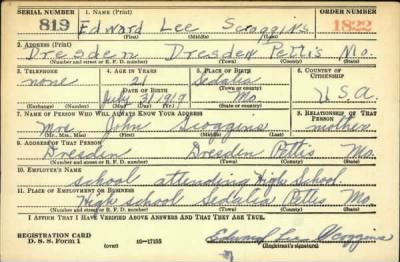 SERIAL NUMBER 1. NAME (Print) ORDER NUMBER
819 Edward Lee Scoggins 1822
(First) (Middle) (Last)
2. ADDRESS (Print)
Dresden Dresden Pettis Mo.
(Number and street or R. F. D. number) (Town) (County) (State)
3. TELEPHONE 4. AGE IN YEARS 5. PLACE OF BIRTH 6. COUNTRY OF CITIZENSHIP
none 21 Sedalia
DATE OF BIRTH (Town or county)
July 3 1919 Mo. U.S.A.
(Exchange) (Number) (Mo.) (Day) (Yr.) (State or country)
7. NAME OF PERSON WHO WILL ALWAYS KNOW YOUR ADDRESS 8. RELATIONSHIP OF THAT PERSON
Mrs John Scoggins mother
(Mr., Mrs., Miss) (First) (Middle) (Last)
9. ADDRESS OF THAT PERSON
Dresden Dresden Pettis Mo.
(Number and street or R. F. D. number) (Town) (County) (State)
10. EMPLOYER'S NAME
school attending High School
11. PLACE OF EMPLOYMENT OR BUSINESS
High school Sedalia Pettis Mo
(Number and street or R. F. D. number) (Town) (County) (State)
I AFFIRM THAT I HAVE VERIFIED ABOVE ANSWERS AND THAT THEY ARE TRUE.
REGISTRATION CARD Edward Lee Scoggins
D. S. S. Form 1 (over) 16—17105 (Registrant's signature)